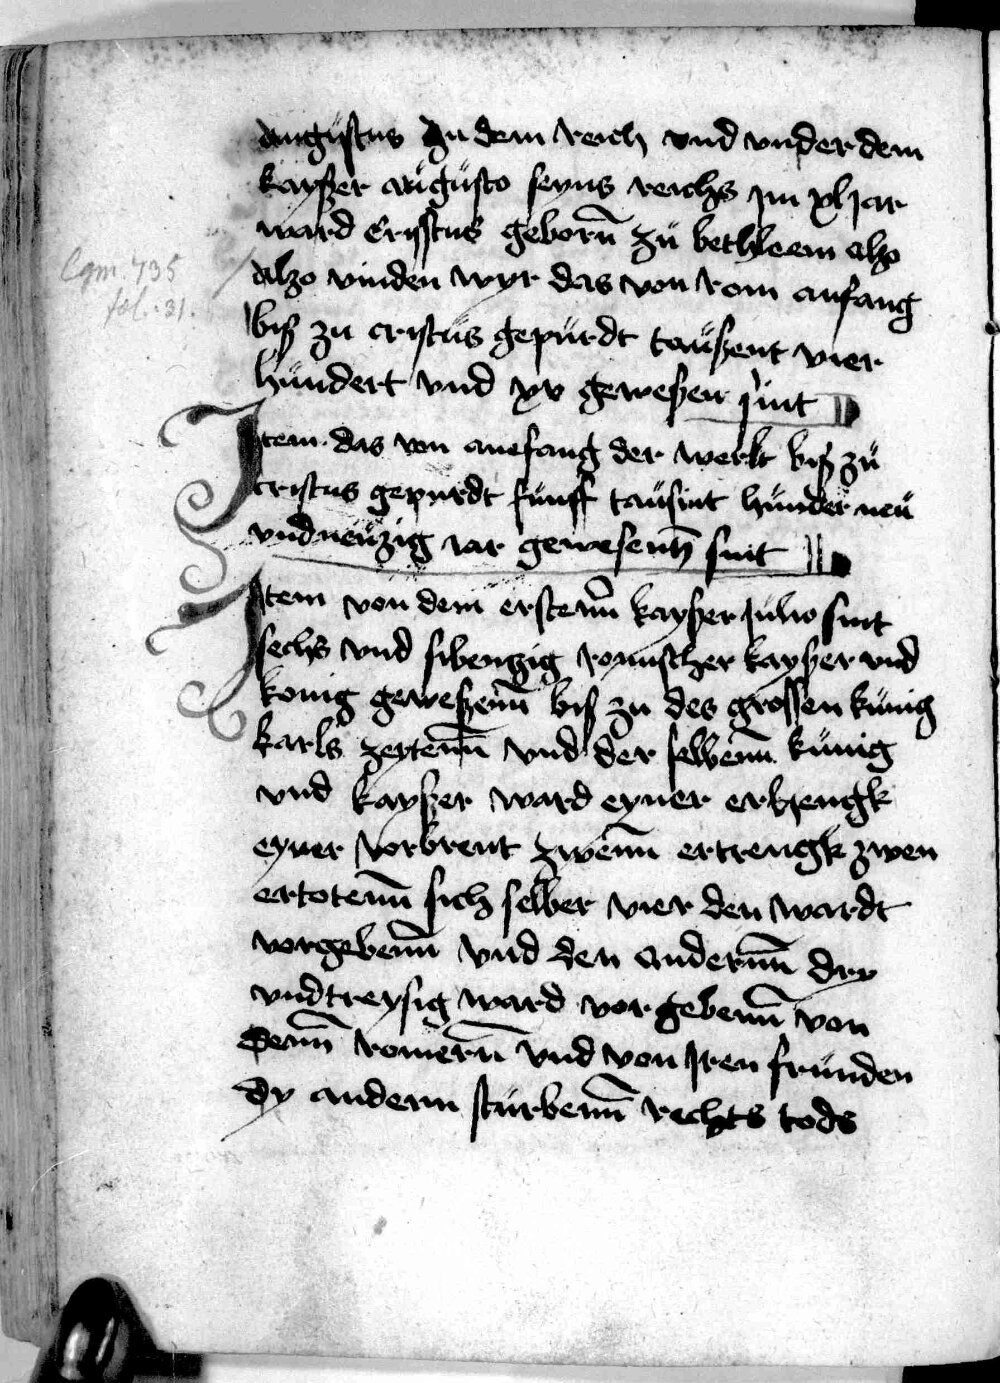 augustus zu dem reich vnd vnder dem
kayßer augusto seyns reichs im xl jar
ward Cristus geborn zu bethleem also
Cgm. 735
fol. 31.
also vinden wyr das von rom anfang
biß zu cristus gepurdt taußent vier
hundert vnd xv geweßen sint
Item das von anefang der werlt biß zu
cristus gepurdt funff tausint hunder neu
vndneuzig iar gewesenn sint
Item von dem erstenn kayßer Julio sint
sechs vnd sibenzig romischer kayßer vnd
konig geweßenn biß zu des grossen kunig
karls zeytenn vnd der selbenn kunig
vnd kayßer ward eyner erhengk
eyner vorbrent zwenn ertrengk zwen
ertotenn sich selber vier den wardt
vorgebenn vnd den andernn dry
vndtreysig ward vorgebenn von
denn romern vnd von Iren frunden
dy andern sturbenn rechts tods